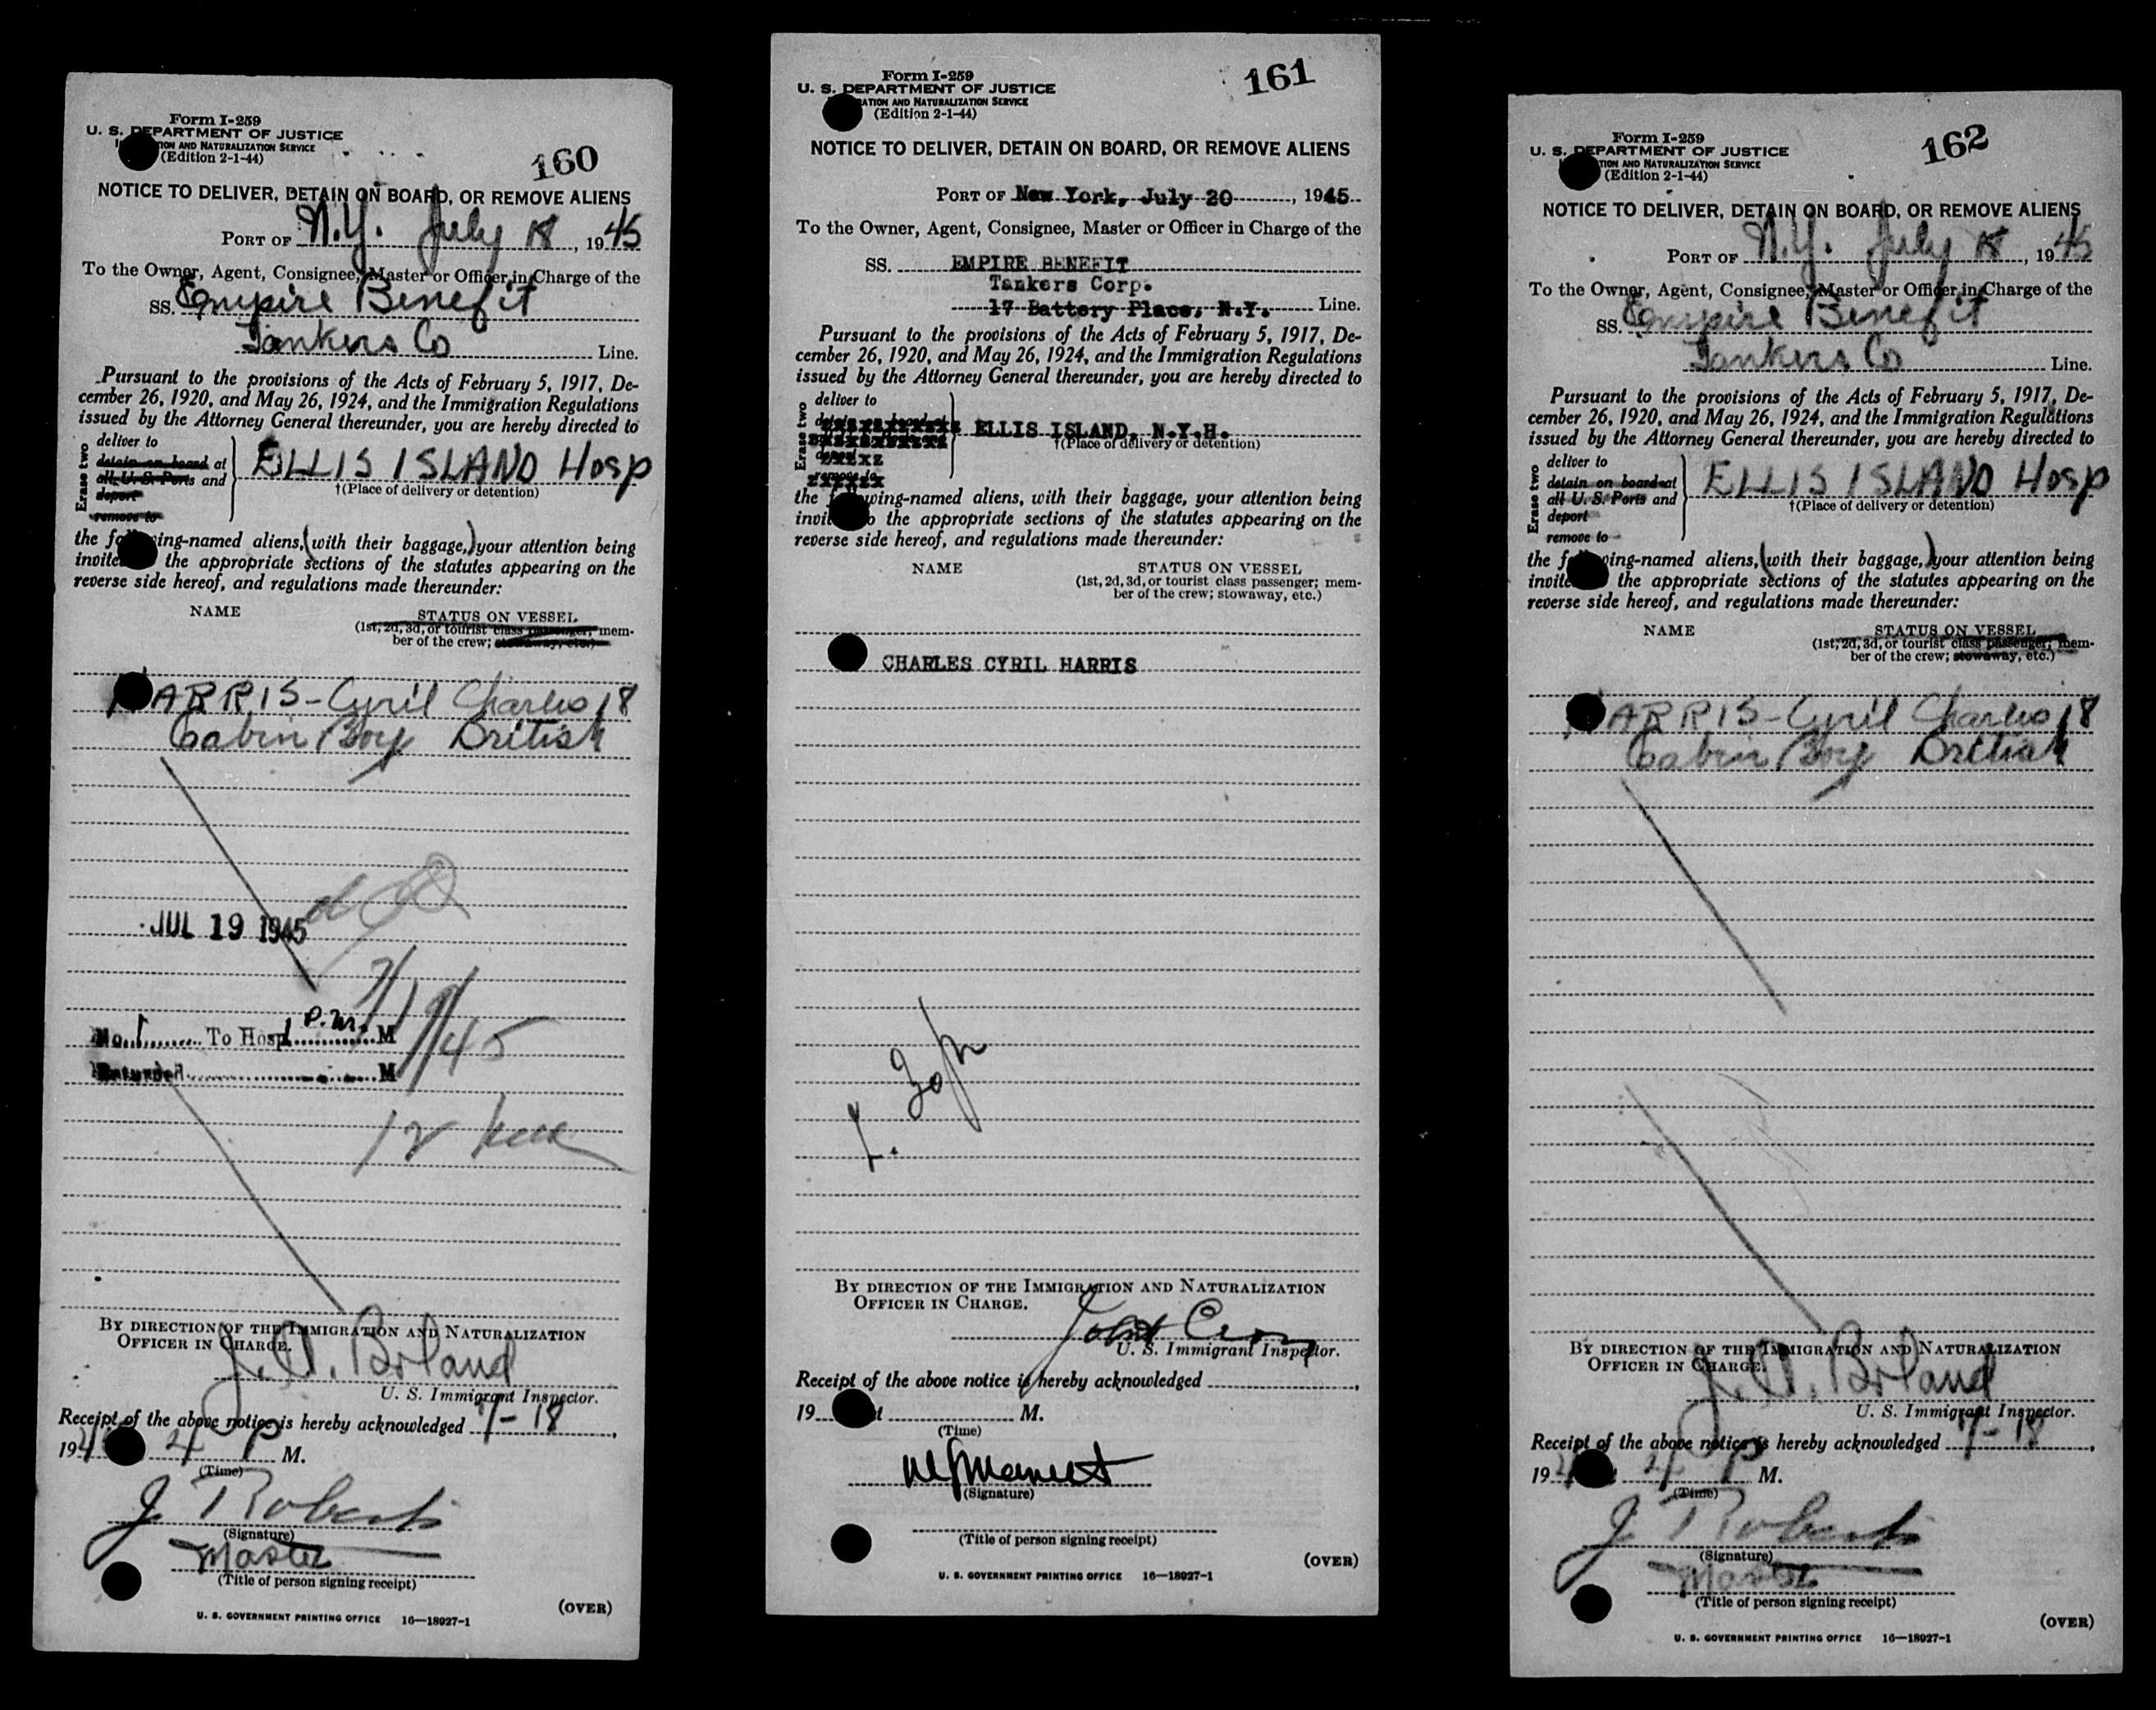 Form I-259
U. S. DEPARTMENT OF JUSTICE
ION AND NATURALIZATION SERVICE
(Edition 2-1-44)
160
NOTICE TO DELIVER, DETAIN ON BOARD, OR REMOVE ALIENS
PORT OF N.Y. July 18, 1945
To the Owner, Agent, Consignee, Master or Officer in Charge of the
SS. Empire Benefit
Tankers Co Line.
Pursuant to the provisions of the Acts of February 5, 1917, De-
cember 26, 1920, and May 26, 1924, and the Immigration Regulations
issued by the Attorney General thereunder, you are hereby directed to
Erase two
deliver to
detain on board at
all U. S. Ports and
deport
remove to
ELLIS ISLAND Hosp
†(Place of delivery or detention)
the fo ing-named aliens, (with their baggage,) your attention being
invite the appropriate sections of the statutes appearing on the
reverse side hereof, and regulations made thereunder:
NAME STATUS ON VESSEL
(1st, 2d, 3d, or tourist class passenger; mem-
ber of the crew; stowaway, etc.)
HARRIS - Cyril Charles 18
Cabin Boy British
JUL 19 1945
7/19/45
No. 1 To Hosp 1 P.M. M
Returned M
By direction of the Immigration and Naturalization
Officer in Charge.
J. A. Boland
U. S. Immigrant Inspector.
Receipt of the above notice is hereby acknowledged 7-18,
194 4 P M.
(Time)
J Roberts
(Signature)
Master
(Title of person signing receipt)
(OVER)
U. S. GOVERNMENT PRINTING OFFICE 16—18927-1
Form I-259
U. S. DEPARTMENT OF JUSTICE
ATION AND NATURALIZATION SERVICE
(Edition 2-1-44)
161
NOTICE TO DELIVER, DETAIN ON BOARD, OR REMOVE ALIENS
PORT OF New York, July 20, 1945
To the Owner, Agent, Consignee, Master or Officer in Charge of the
SS. EMPIRE BENEFIT
Tankers Corp.
17 Battery Place, N.Y. Line.
Pursuant to the provisions of the Acts of February 5, 1917, De-
cember 26, 1920, and May 26, 1924, and the Immigration Regulations
issued by the Attorney General thereunder, you are hereby directed to
Erase two
deliver to
detain on board at
deport
remove to
ELLIS ISLAND, N.Y.H.
†(Place of delivery or detention)
the f wing-named aliens, with their baggage, your attention being
invi o the appropriate sections of the statutes appearing on the
reverse side hereof, and regulations made thereunder:
NAME STATUS ON VESSEL
(1st, 2d, 3d, or tourist class passenger; mem-
ber of the crew; stowaway, etc.)
CHARLES CYRIL HARRIS
By direction of the Immigration and Naturalization
Officer in Charge.
U. S. Immigrant Inspector.
Receipt of the above notice is hereby acknowledged ,
19 t M.
(Time)
(Signature)
(Title of person signing receipt)
(OVER)
U. S. GOVERNMENT PRINTING OFFICE 16—18927-1
Form I-259
U. S. DEPARTMENT OF JUSTICE
TION AND NATURALIZATION SERVICE
(Edition 2-1-44)
162
NOTICE TO DELIVER, DETAIN ON BOARD, OR REMOVE ALIENS
PORT OF N.Y. July 18, 1945
To the Owner, Agent, Consignee, Master or Officer in Charge of the
SS. Empire Benefit
Tankers Co Line.
Pursuant to the provisions of the Acts of February 5, 1917, De-
cember 26, 1920, and May 26, 1924, and the Immigration Regulations
issued by the Attorney General thereunder, you are hereby directed to
Erase two
deliver to
detain on board at
all U. S. Ports and
deport
remove to
ELLIS ISLAND Hosp
†(Place of delivery or detention)
the f ing-named aliens, (with their baggage,) your attention being
invite the appropriate sections of the statutes appearing on the
reverse side hereof, and regulations made thereunder:
NAME STATUS ON VESSEL
(1st, 2d, 3d, or tourist class passenger; mem-
ber of the crew; stowaway, etc.)
HARRIS - Cyril Charles 18
Cabin Boy British
By direction of the Immigration and Naturalization
Officer in Charge.
J. A. Boland
U. S. Immigrant Inspector.
Receipt of the above notice is hereby acknowledged 7-18,
194 4 P M.
(Time)
J Roberts
(Signature)
Master
(Title of person signing receipt)
(OVER)
U. S. GOVERNMENT PRINTING OFFICE 16—18927-1